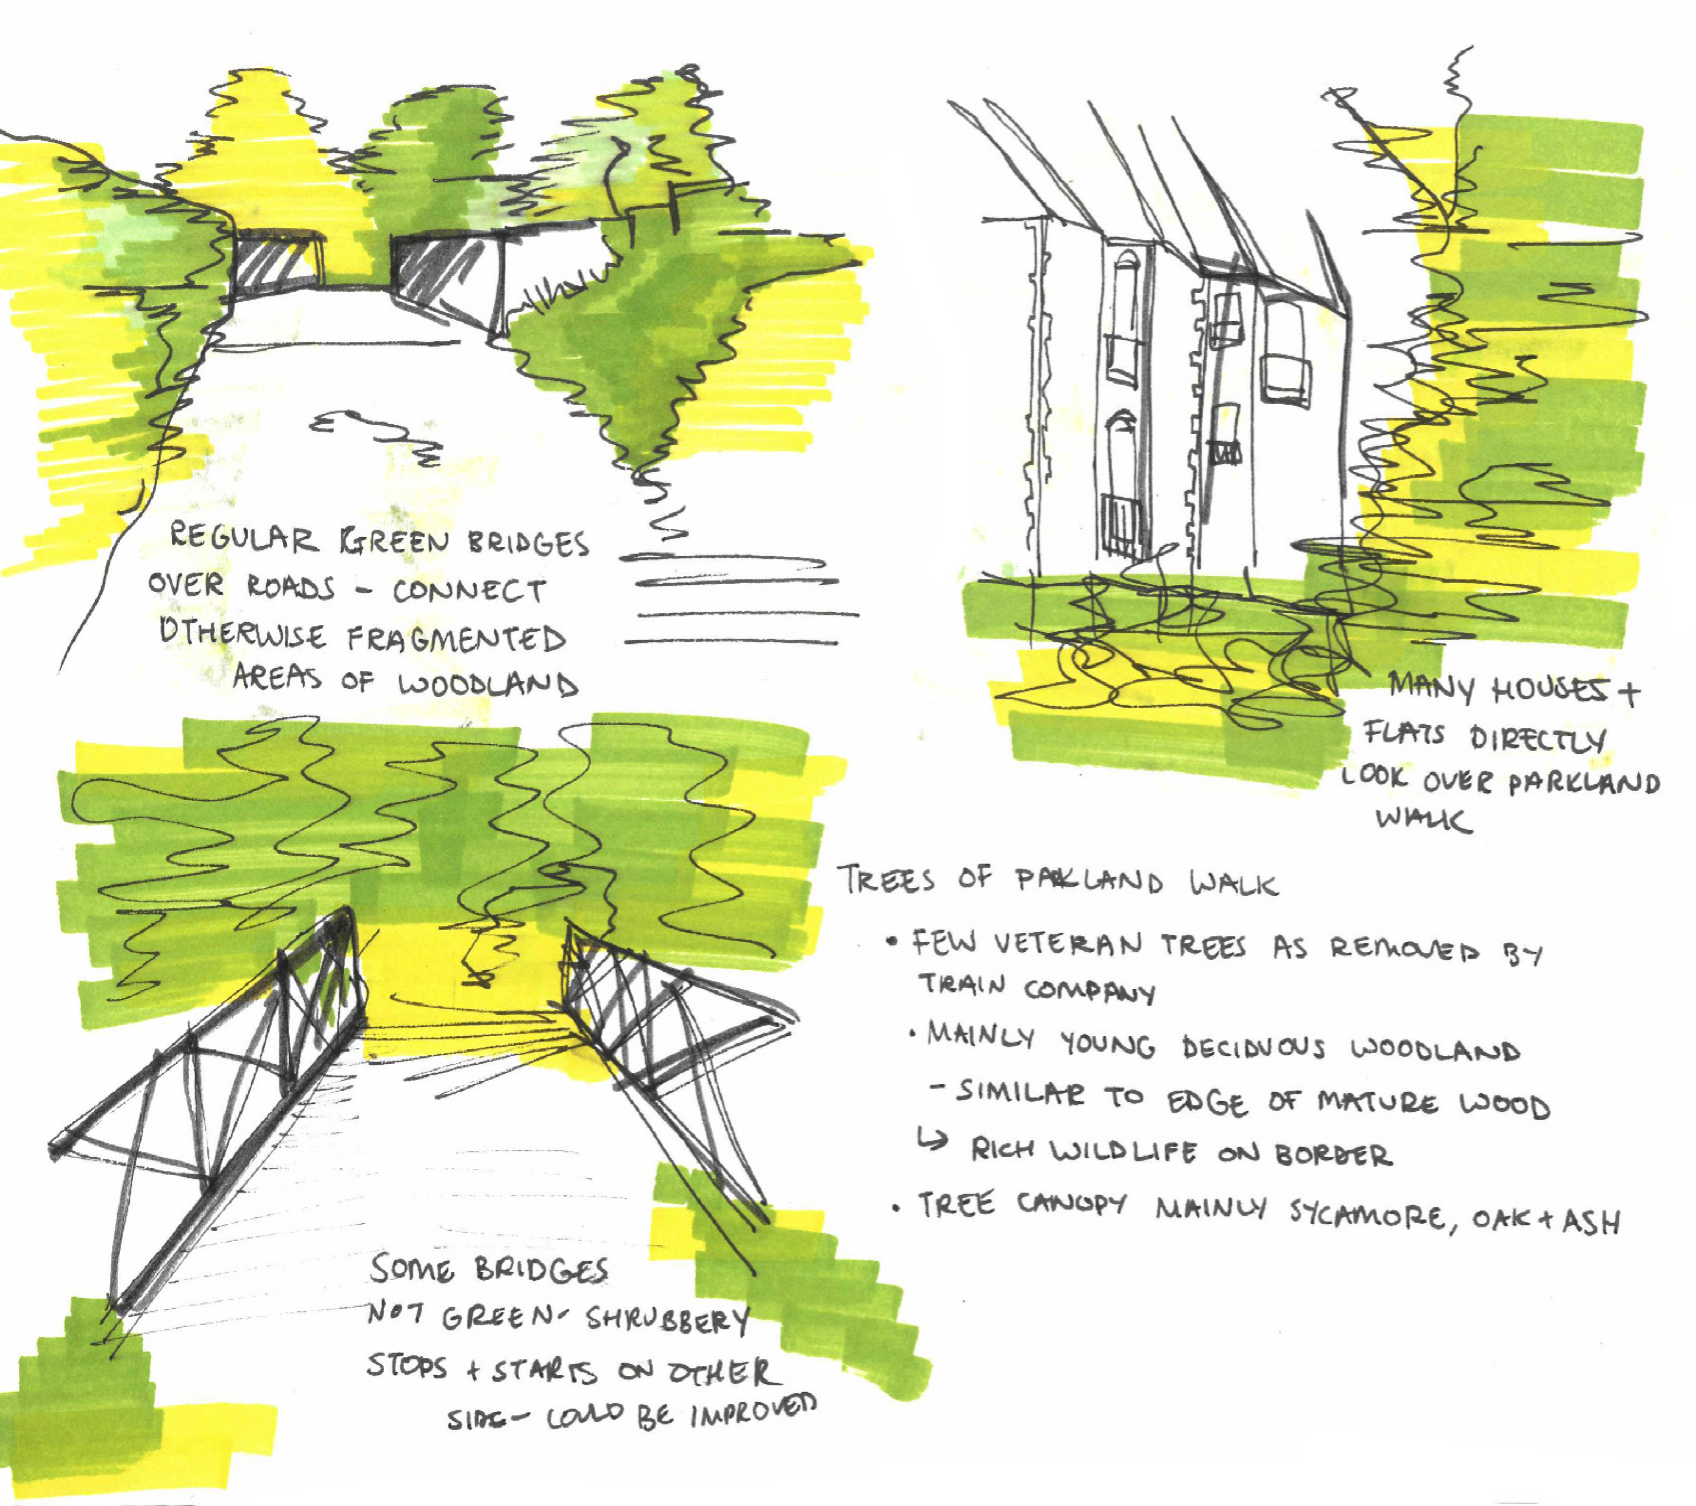 REGULAR GREEN BRIDGES
OVER ROADS - CONNECT
OTHERWISE FRAGMENTED
AREAS OF WOODLAND
MANY HOUSES +
FLATS DIRECTLY
LOOK OVER PARKLAND
WALK
TREES OF PARKLAND WALK
• FEW VETERAN TREES AS REMOVED BY
TRAIN COMPANY
• MAINLY YOUNG DECIDUOUS WOODLAND
- SIMILAR TO EDGE OF MATURE WOOD
↳ RICH WILDLIFE ON BORDER
• TREE CANOPY MAINLY SYCAMORE, OAK + ASH
SOME BRIDGES
NOT GREEN - SHRUBBERY
STOPS + STARTS ON OTHER
SIDE - COULD BE IMPROVED